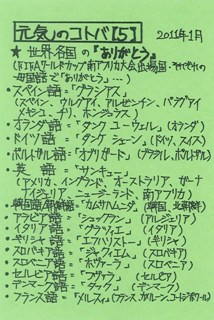 「元気」のコトバ【5】 2011年1月
★ 世界各国の『ありがとう』
(FIFAワールドカップ南アフリカ大会出場国・それぞれの
母国語で「ありがとう」…)
・スペイン語=「グラシアス」
(スペイン、ウルグアイ、アルゼンチン、パラグアイ
メキシコ、チリ、ホンジュラス)
・オランダ語=「ダンク ユーウェル」(オランダ)
・ドイツ語=「ダンケ シェーン」(ドイツ、スイス)
・ポルトガル語=「オブリガード」(ブラジル、ポルトガル)
・英語=「サンキュー」
(アメリカ、イングランド、オーストラリア、ガーナ
ナイジェリア、ニュージーランド、南アフリカ)
「カムサハムニダ」
・アラビア語=「シュクラン」(アルジェリア)
・イタリア語=「グラツィエ」(イタリア)
・ギリシャ語=「エフハリストー」(ギリシャ)
・スロバキア語=「ジャクイエム」(スロバキア)
・スロベニア語=「ホヴァーラ」(スロベニア)
・セルビア語=「フヴァラ」(セルビア)
・デンマーク語=「タック」(デンマーク)
・フランス語=「メルスィ」(フランス、カメルーン、コートジボワール)